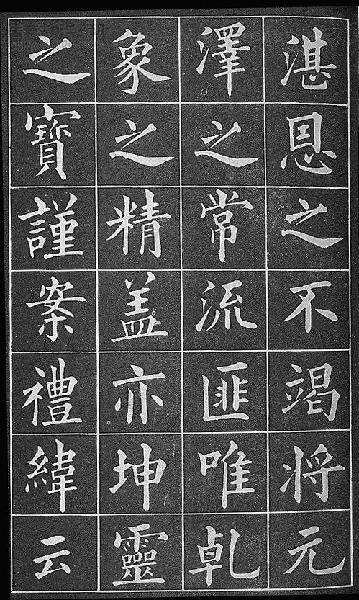 湛恩之不竭將元
澤之常流匪唯乹
象之精盖亦坤靈
之寶謹案禮緯云